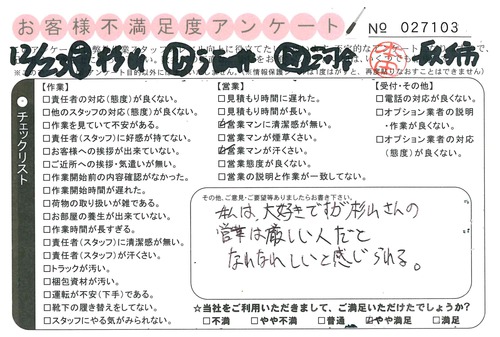 お客様不満足度アンケート
No 027103
12/23
チェックリスト
【作業】
□責任者の対応(態度)が良くない。
□他のスタッフの対応(態度)が良くない。
□作業を見ていて安心がある。
□責任者(スタッフ)に好感が持てない。
□お客様への挨拶が出来ていない。
□ご近所への挨拶・気遣いが無い。
□作業開始前の内容確認がなかった。
□作業開始時間が遅れた。
□荷物の取り扱いが雑である。
□お部屋の養生が出来ていない。
□作業時間が長すぎる。
□責任者(スタッフ)に清潔感が無い。
□責任者(スタッフ)が汗くさい。
□トラックが汚い。
□梱包資材が汚い。
□運転が不安(下手)である。
□靴下の履き替えをしてない。
□スタッフにやる気がみられない。
【営業】
□見積もり時間に遅れた。
□見積もり時間が長い。
□営業マンに清潔感が無い。
□営業マンが煙草くさい。
□営業マンが汗くさい。
□営業態度が良くない。
□営業の説明と作業が一致してない。
【受付・その他】
□電話の対応が良くない。
□オプション業者の説明・作業が良くない。
□オプション業者の対応(態度)が良くない。
その他、ご意見・ご要望等ありましたらお書き下さい。
私は、大好きですが杉山さんの
営業は厳しい人だと
なれなれしいと感じられる。
☆当社をご利用いただきまして、ご満足いただけたでしょうか?
□不満 □やや不満 □普通 □やや満足 □満足